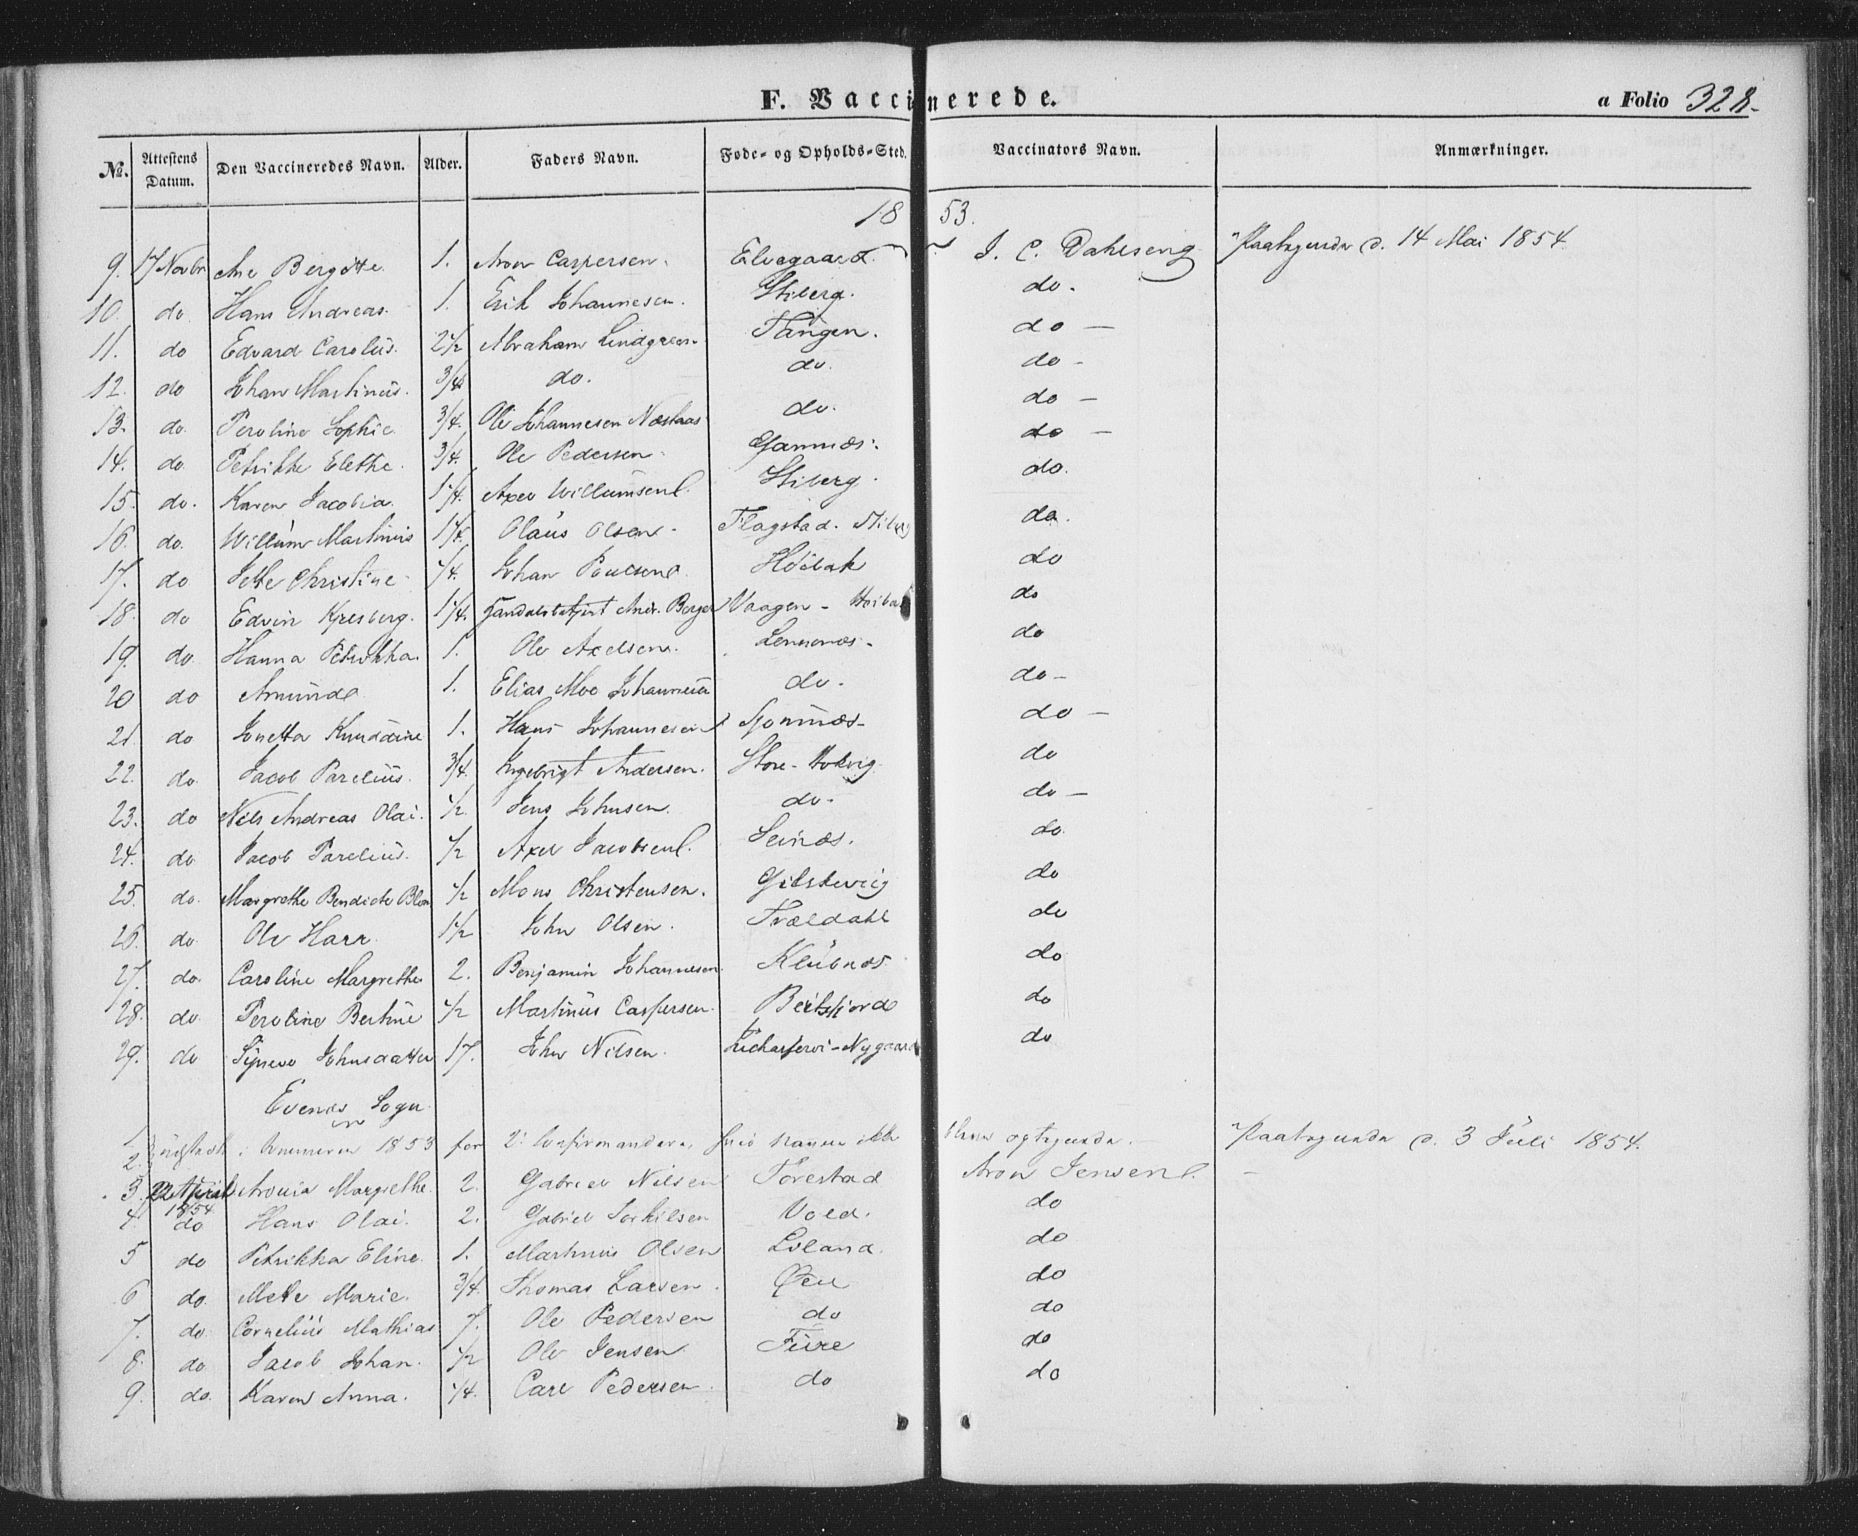 F. Vaccinerede.
a Folio 328.
№. Attestens Datum. Den Vaccineredes Navn. Alder. Faders Navn. Føde- og Opholds-Sted. Vaccinators Navn. Anmærkninger.
1853.
9. 17 Novbr Ane Bergitte 1. Aron Caspersen. Elvegaard. J. C. Dahlseng Paategnede d. 14 Mai 1854.
10. do Hans Andreas. 1. Erik Johannesen. Stiberg. do.
11. do Edvard Carolus. 2 1/2 Abraham Lindgreen. Tangen. do —
12. do Johan Martinus. 3/4 do. do. do —
13. do. Peroline Sophie 3/4. Ole Johannesen do. do —
14. do. Petrikke Elethe. 3/4. Ole Pedersen. do —
15. do. Karen Jacobia. 1 1/4. Axel Willumsen. Stiberg. do.
16. do. Willum Martinus 1 1/4. Olaus Olsen. Flagstad. do.
17. do Jette Christine 1/4. Johan Poulsen. Høibak do
18. do Edvin 1 1/4. Andr. Berger Vaagen - do
19. do. Hanna Petrikka. 1. Ole Axelsen. Lennæs. do
20 do Amund 1. Elias Moe Johannesen do. do —
21. do Jonetta Knuddine 1. Hans Johannesen do —
22. do. Jacob Parelius. 3/4. Ingebrigt Andersen. Store- do
23. do Nils Andreas Olai. 1/2. Jens Johnsen. do. do —
24. do Jacob Parelius. 1/2 Axel Jacobsen. Seinæs. do.
25. do. Margrethe Bendicte 1/2 Mons Christensen. do
26 do. Ole Harr. 1 1/2 John Olsen. Trældahl do
27. do. Caroline Margrethe 2. Benjamin Johannesen Klubnæs do
28. do. Peroline Bertine 1/2 Martinus Caspersen. Beitsfjord do
29. do Synevo Johnsdatter 17. John Nilsen. Nygaard do
Evenes Sogn.
1. 2. i Sommeren 1853 for 2 Confirmander, Navne ikke optegnede. Paategnede d. 3 Juli 1854.
3. 22 April 1854 Aronia Margrethe. 2. Gabriel Nilsen Forestad Aron Jensen. —
4. do Hans Olai. 2. Gabriel Torkilsen Vold. do
5 do Petrikka Eline. 1. Martinus Olsen Liland. do
6 do. Mette Marie. 3/4. Thomas Larsen. do
7. do. Cornelius Mathias 7. Ole Pedersen do do
8. do Jacob Johan. 1/2 Ole Jensen. do
9. do. Karen Anna. 1/4. Carl Pedersen. do do